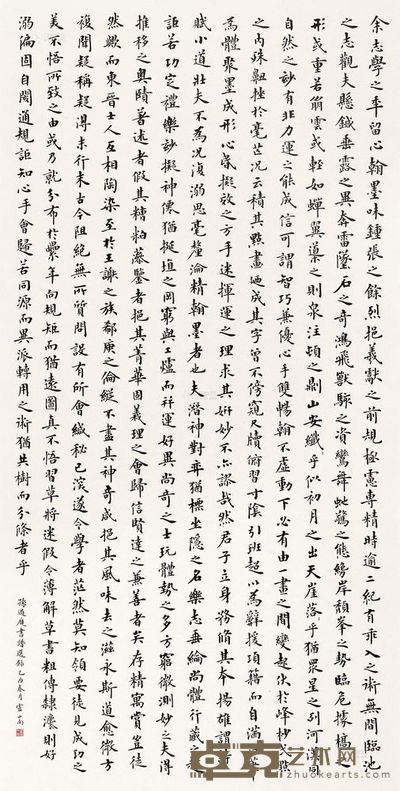 余志學之年留心翰墨味鍾張之餘烈挹羲獻之前規極慮專精時逾二紀有乖入之術無間臨池
之志觀夫懸針垂露之異奔雷墜石之奇鴻飛獸駭之資鸞舞蛇驚之態絕岸頹峯之勢臨危據槁之
形或重若崩雲或輕如蟬翼導之則泉注頓之則山安纖乎似初月之出天崖落乎猶衆星之列河漢同
自然之妙有非力運之能成信可謂智巧兼優心手雙暢翰不虛動下必有由一畫之間變起伏於峰杪一點
之內殊衄挫於毫芒況云積其點畫乃成其字曾不傍窺尺牘俯習寸陰引班超以為辭援項籍而自滿任筆
為體聚墨成形心昏擬效之方手迷揮運之理求其妍妙不亦謬哉然君子立身務脩其本揚雄謂詩
賦小道壯夫不為況復溺思毫釐淪精翰墨者也夫潛神對弈猶標坐隱之名樂志垂綸尚體行藏之趣
詎若功定禮樂妙擬神僊猶埏埴之罔窮與工爐而并運好異尚奇之士玩體勢之多方窮微測妙之夫得
推移之奧賾著述者假其糟粕藻鑒者挹其菁華固義理之會歸信賢達之兼善者矣存精寓賞豈徒
然歟而東晉士人互相陶染至於王謝之族郗庾之倫縱不盡其神奇咸挹其風味去之滋永斯道愈微方
複聞疑稱疑得末行末古今阻絕無所質問設有所會緘秘已深遂令學者茫然莫知領要徒見成功之
美不悟所致之由或乃就分布於累年向規矩而猶遠圖真不悟習草將迷假令薄解草書粗傳隸法則好
溺偏固自閡通規詎知心手會歸若同源而異派轉用之術猶共樹而分條者乎
孫過庭書譜選錄
艺术网
zhuokearts.com